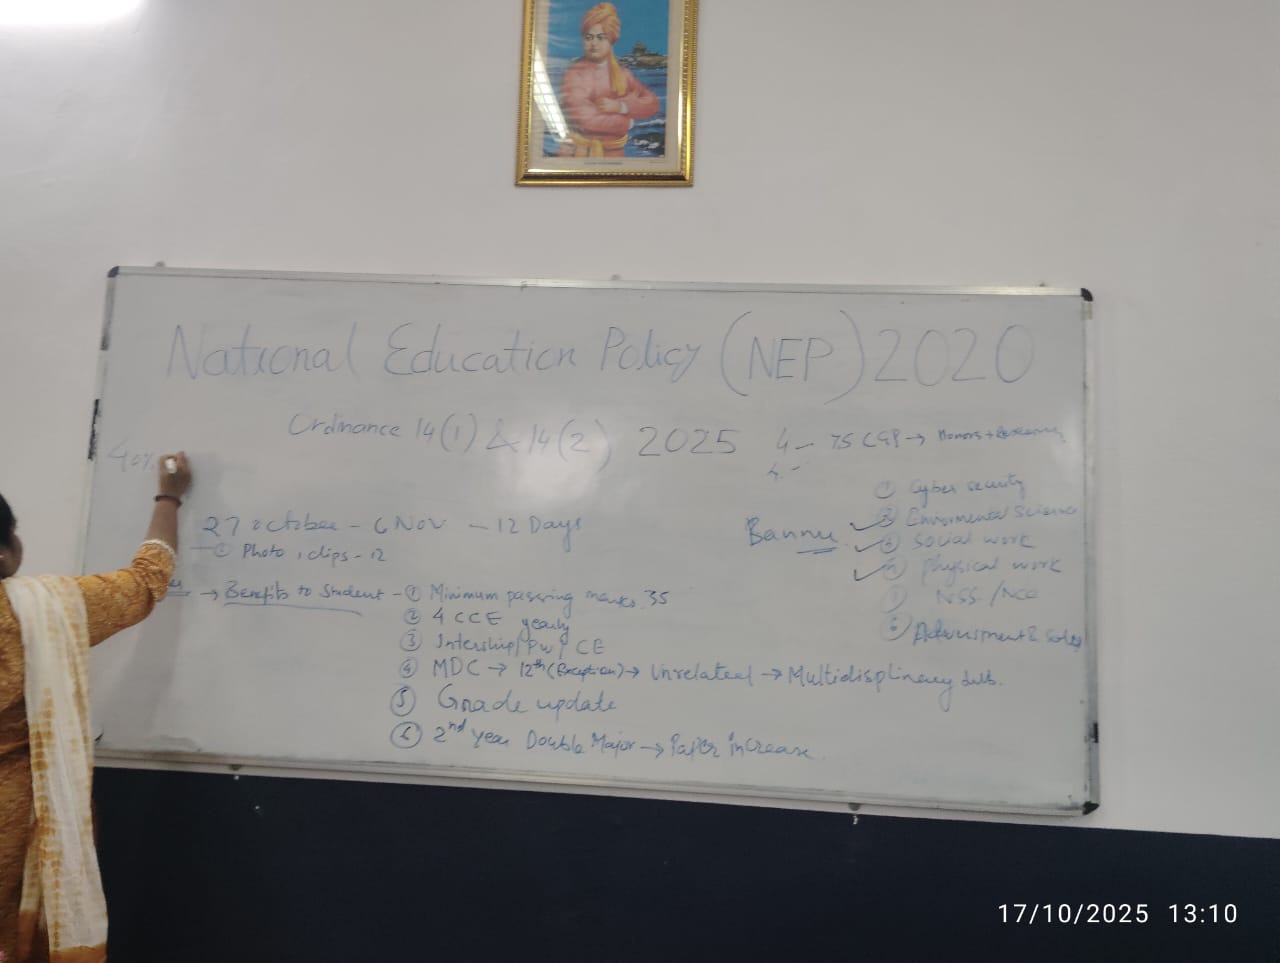 National Education Policy (NEP) 2020
Ordinance 14(1) & 14(2) 2025
4 - 75 CGP → Honors +
4 -
40%
27 october - 6 Nov - 12 Days
① Photo, clips - 12
→ Benefits to Student - ① Minimum passing marks 35
② 4 CCE yearly
③ Intership/PW/CE
④ MDC → 12th (Exception) → Unrelated → Multidisplinary
⑤ Grade update
⑥ 2nd year Double Major → Paper increase
① Cyber security
② Enviromental Science
③ Social work
④ physical work
NSS /
⑥
17/10/2025 13:10